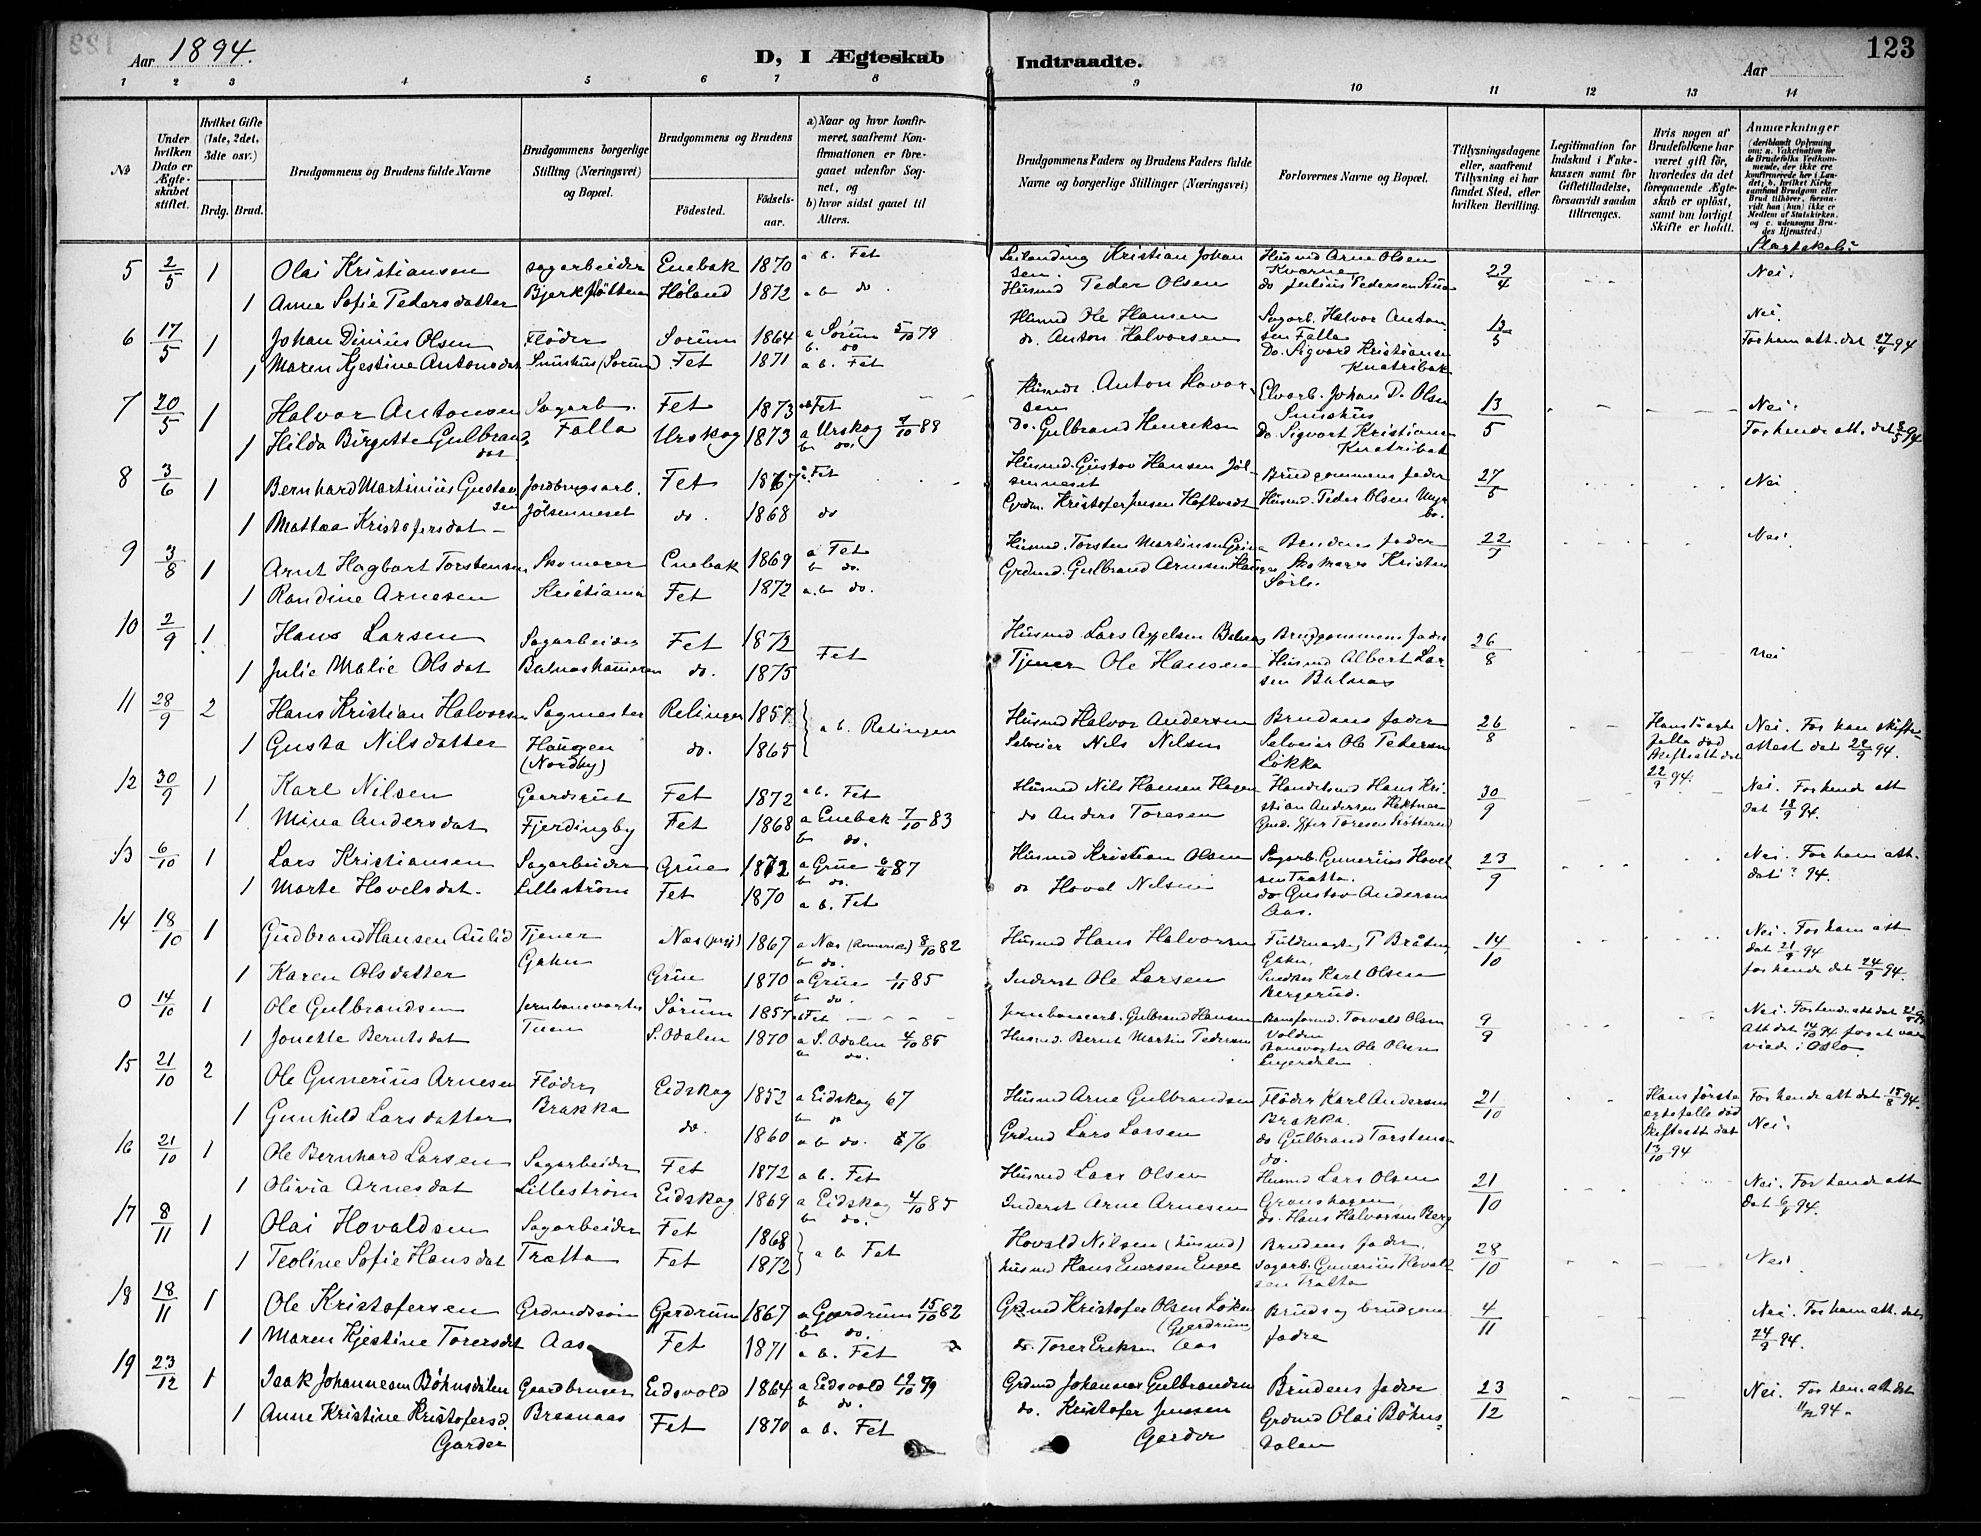 Aar 1894.
D, I Ægteskab
Indtraadte.
Aar
123
1 2 3 4 5 6 7 8 9 10 11 12 13 14
No
Under hvilken Dato er Ægteskabet stiftet.
Hvilket Gifte (1ste, 2det, 3die osv.)
Brdg. Brud.
Brudgommens og Brudens fulde Navne
Brudgommens borgerlige Stilling (Næringsvei) og Bopæl.
Brudgommens og Brudens
Fødested.
Fødselsaar.
a) Naar og hvor konfirmeret, saafremt Konfirmationen er foregaaet udenfor Sognet, og
b) hvor sidst gaaet til Alters.
Brudgommens Faders og Brudens Faders fulde Navne og borgerlige Stillinger (Næringsvei)
Forlovernes Navne og Bopæl.
Tillysningsdagene eller, saafremt Tillysning ei har fundet Sted, efter hvilken Bevilling.
Legitimation for Indskud i Enkekassen samt for Giftetilladelse, forsaavidt saadan tiltrænges.
Hvis nogen af Brudefolkene har været gift før, hvorledes da det foregaaende Ægteskab er opløst, samt om lovligt Skifte er holdt.
Anmærkninger
(deriblandt Oplysning om: a. Vakcination for de Brudefolks Vedkommende, der ikke ere konfirmerede her i Landet; b. hvilket Kirkesamfund Brudgom eller Brud tilhører, forsaavidt han (hun) ikke er Medlem af Statskirken, og c. udensogns Brudes Hjemsted.)
5 2/5 1 Olai Kristiansen Sagarbeider Enebak 1870 a b. Fet Kristian Johansen Husmd Arne Olsen Kvarne 22/4 Nei.
1 Anne Sofie Pedersdatter Høland 1872 a b do. Husmd Peder Olsen do Julius Pedersen
6 17/5 1 Johan Dinius Olsen Fløder Sørum 1864 a Sørum 5/10 79 b. do Husmd Ole Hansen Sagarb. Halvor Antonsen Falla 13/5 Nei.
1 Maren Kjestine Antonsdat Smushus (Sørum) Fet 1871 a b. Fet do. Anton Halvorsen Do. Sigvard Kristiansen Knatribak For ham att. dat 27/4 94
7 20/5 1 Halvor Antonsen Sagarb. Fet 1873 Fet Husmd. Anton Havorsen Elvarb. Johan D. Olsen Smushus 13/5 Nei.
1 Hilda Birgitte Gulbrandsdat. Falla Urskog 1873 a Urskog 7/10 88 b do. Do. Gulbrand Henriksen Do. Sigvart Kristiansen Knatribak For hende att. dat 94
8 3/6 1 Bernhard Martinius Gustavsen Jordbrugsarb. Fet 1867 Fet Husmd. Gustav Hansen Jølsenneset Brudgommens fader 27/5 Nei
1 Mattea Kristofersdat Jølsenneset do. 1868 do Grdm. Kristofer Jensen Heftvedt Husmd. Peder Olsen
9 3/8 1 Arnt Hagbart Torstensen Skomager Enebak 1869 a Fet b do. Husmd. Torsten Martinsen Brudens fader 22/7 Nei.
1 Randine Arnesen Kristiania Fet 1872 a. b do. Grdmd. Gulbrand Arnesen Skomager Kristen Sørli
10 2/9 1 Hans Larsen Sagarbeider Fet 1872 Fet Husmd Lars Axelsen Balnes Brudgommens fader 26/8 Nei
1 Julie Malie Olsdat Balneskammeren do. 1875 Tjener Ole Hansen Husmd Albert Larsen Balnes
11 28/9 2 Hans Kristian Halvorsen Sagmester Relingen 1857 a b. Relingen Husmd Halvor Andersen Brudens fader 26/8 Hans 1 ægtefælle død Skifteatt dat 22/9 94. Nei. For ham skifteattest dat 22/9 94.
1 Gusta Nilsdatter Haugen (Nordby) do. 1865 Selveier Nils Nilsen Selveier Ole Pedersen Løkka
12 30/9 1 Karl Nilsen Gaardsgut Fet 1872 a b. Fet Husmd Nils Hansen Hagen Handelsmd Hans Kristian Andersen 30/9 Nei. For hende att dat 18/9 94.
1 Mina Andersdat Fjerdingby Fet 1868 a Enebak 7/10 83 b do. do Anders Toresen
13 6/10 1 Lars Kristiansen Sagarbeider Grue 1872 a Grue 87 b do. Husmd Kristian Olsen Sagarb. Gunerius Hovelsen Trætta. 23/9 Nei. For ham att. dat ? 94.
1 Marte Hovelsdat. Lillestrøm Fet 1870 a b. Fet do Hovel Nilsen do Gustav Andersen Aas.
14 18/10 1 Gudbrand Hansen Aulid Tjener Næs 1867 a Næs (Romerike) 8/10 82 b do. Husmd Hans Halvorsen Fuldmægtig P Bråten Gahn. 14/10 Nei. For ham att dat 21/9 94
1 Karen Olsdatter Gahn Grue 1870 a Grue 1/11 85 b do. Inderst Ole Larsen Snedker Karl Olsen Bergerud. for hende dat 24/9 94.
0 14/10 1 Ole Gulbrandsen Jernbanevogter Sørum 1857 Fet Jernbanearb. Gulbrand Hansen Baneformd. Torvald Olsen Volden 9/9 Nei. For hende att dat
1 Jonette Berntsdat Tuen S. Odalen 1870 a S. Odalen 4/10 85 b do. Husmd. Bernt Martin Pedersen Banevogter Ole Olsen Engerdalen Att dat 14/10 94 for at være viede i Oslo.
15 21/10 2 Ole Gunerius Arnesen Fløder Eidskog 1852 a Eidskog 67 b do Husmd Arne Gulbrandsen Fløder Karl Andersen Brakka. 21/10 Hans første ægtefælle død Skifteatt dat 13/10 94 For hende att dat 15/8 94.
1 Gunhild Larsdatter Brakka do. 1860 a b do. 76 Grdmd Lars Larsen do Gulbrand Torstensen do. Nei.
16 21/10 1 Ole Bernhard Larsen Sagarbeider Fet 1872 a b. Fet Husmd Lars Olsen Husmd Lars Olsen 21/10 Nei. For hende att dat 94.
1 Olivia Arnesdat Lillestrøm Eidskog 1869 a Eidskog 4/10 85 b do. Inderst Arne Arnesen do. Hans Halvorsen Berg
17 8/11 1 Olai Hovaldsen Sagarbeider Fet 1868 a b Fet Hovald Nilsen (husmd) Brudens fader. 28/10 Nei
1 Teoline Sofie Hansdat Trætta Fet 1872 husmd Hans Evensen Enger Sagarb. Gunerius Hovaldsen Trætta
18 18/11 1 Ole Kristofersen Grdmdssøn Gjerdrum 1867 a Gjerdrum 15/10 82 b do. Grdmd Kristofer Olsen Løken (Gjerdrum) Bruds og brudgoms fadre 4/11 Nei. For ham att. dat 24/9 94.
1 Maren Kjestine Torersdat Aas Fet 1871 a b. Fet do. Torer Eriksen Aas
19 23/12 1 Isak Johannesen Bøhnsdalen Gaardbruger Eidsvold 1864 a Eidsvold 12/10 79 b do. Grdmd Johannes Gulbrandsen Brudens fader 23/12 Nei. For ham att dat 11/12 94.
1 Anne Kristine Kristofersd Garder Braanaas Fet 1870 a b. Fet do. Kristofer Jensen Garder Grdmd Olai Bøhnsdalen